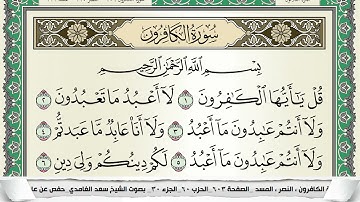 سُورَةُ الكَافِرُونَ
بِسْمِ اللَّهِ الرَّحْمَٰنِ الرَّحِيمِ
قُلْ يَٰٓأَيُّهَا ٱلْكَٰفِرُونَ ١ لَآ أَعْبُدُ مَا تَعْبُدُونَ ٢
وَلَآ أَنتُمْ عَٰبِدُونَ مَآ أَعْبُدُ ٣ وَلَآ أَنَا۠ عَابِدٌ مَّا عَبَدتُّمْ ٤
وَلَآ أَنتُمْ عَٰبِدُونَ مَآ أَعْبُدُ ٥ لَكُمْ دِينُكُمْ وَلِىَ دِينِ ٦
الكافرون ، النصر ، المسد _ الصفحة ٦٠٣ _ الحزب ٦٠ _ الجزء ٣٠ _ بصوت الشيخ سعد الغامدي _ حفص عن